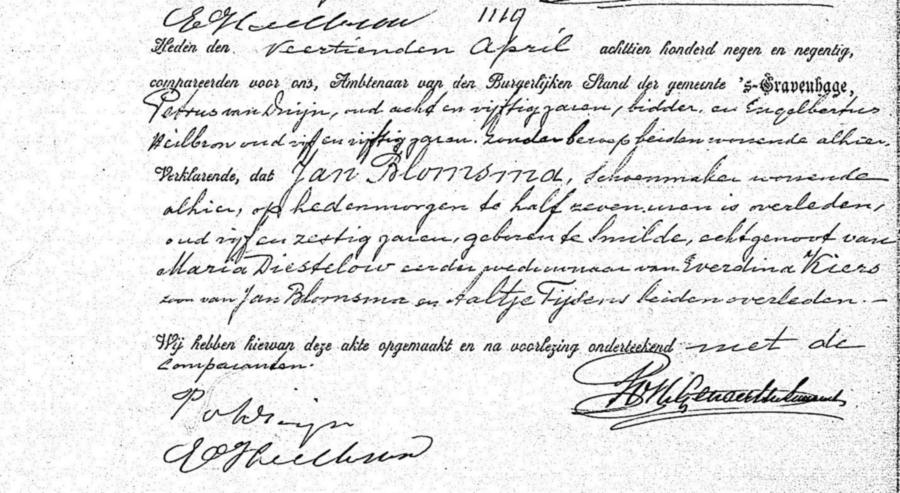 E Heilbron 1119
Heden den veertienden April achttien honderd negen en negentig,
compareerden voor ons, Ambtenaar van den Burgerlijken Stand der gemeente 's-Gravenhage,
Petrus van Duijn, oud acht en vijftig jaren, bidder en Engelbertus
Heilbron oud vijf en vijftig jaren. zonder beroep beiden wonende alhier.
Verklarende, dat Jan Blomsma, schoenmaker wonende
alhier, op hedenmorgen te half zeven uren is overleden,
oud vijf en zestig jaren, geboren te Smilde, echtgenoot van
Maria Diestelow eerder weduwnaar van Everdina Kiers
zoon van Jan Blomsma en Aaltje Tijsens beiden overleden. —
Wij hebben hiervan deze akte opgemaakt en na voorlezing onderteekend met de
comparanten.
P v Duijn
E Heilbron